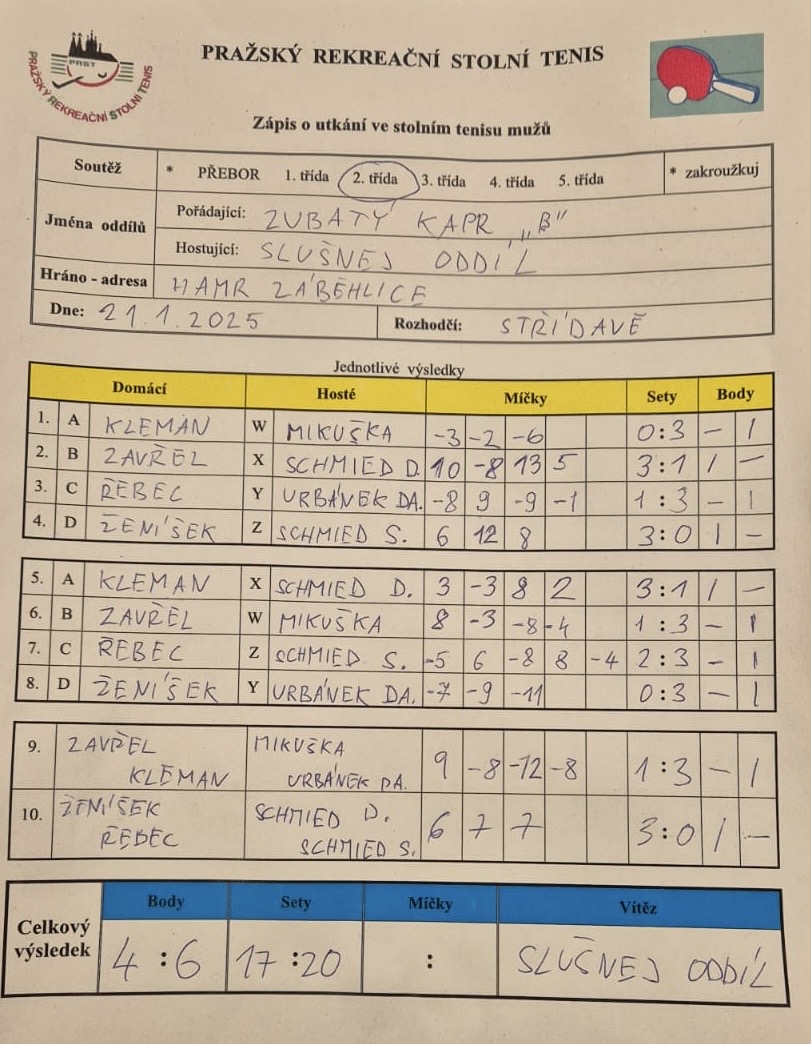 PRBT
PRAŽSKÝ REKREAČNÍ STOLNÍ TENIS
PRAŽSKÝ REKREAČNÍ STOLNÍ TENIS
Zápis o utkání ve stolním tenisu mužů
Soutěž * PŘEBOR 1. třída 2. třída 3. třída 4. třída 5. třída * zakroužkuj
Jména oddílů
Pořádající: ZUBATÝ KAPR „B"
Hostující: SLUŠNEJ ODDÍL
Hráno - adresa HAMR ZÁBĚHLICE
Dne: 21.1.2025 Rozhodčí: STŘÍDAVĚ
Jednotlivé výsledky
Domácí Hosté Míčky Sety Body
1. A KLEMAN W MIKUŠKA -3 -2 -6 0:3 - 1
2. B ZAVŘEL X SCHMIED D. 10 -8 13 5 3:1 1 -
3. C ŘEBEC Y URBÁNEK DA. -8 9 -9 -1 1:3 - 1
4. D ŽENÍŠEK Z SCHMIED S. 6 12 8 3:0 1 -
5. A KLEMAN X SCHMIED D. 3 -3 8 2 3:1 1 -
6. B ZAVŘEL W MIKUŠKA 8 -3 -8 -4 1:3 - 1
7. C ŘEBEC Z SCHMIED S. -5 6 -8 8 -4 2:3 - 1
8. D ŽENÍŠEK Y URBÁNEK DA. -7 -9 -11 0:3 - 1
9. ZAVŘEL MIKUŠKA 9 -8 -12 -8 1:3 - 1
KLEMAN URBÁNEK DA.
10. ŽENÍŠEK SCHMIED D. 6 7 7 3:0 1 -
ŘEBEC SCHMIED S.
Body Sety Míčky Vítěz
Celkový výsledek 4:6 17:20 : SLUŠNEJ ODDÍL